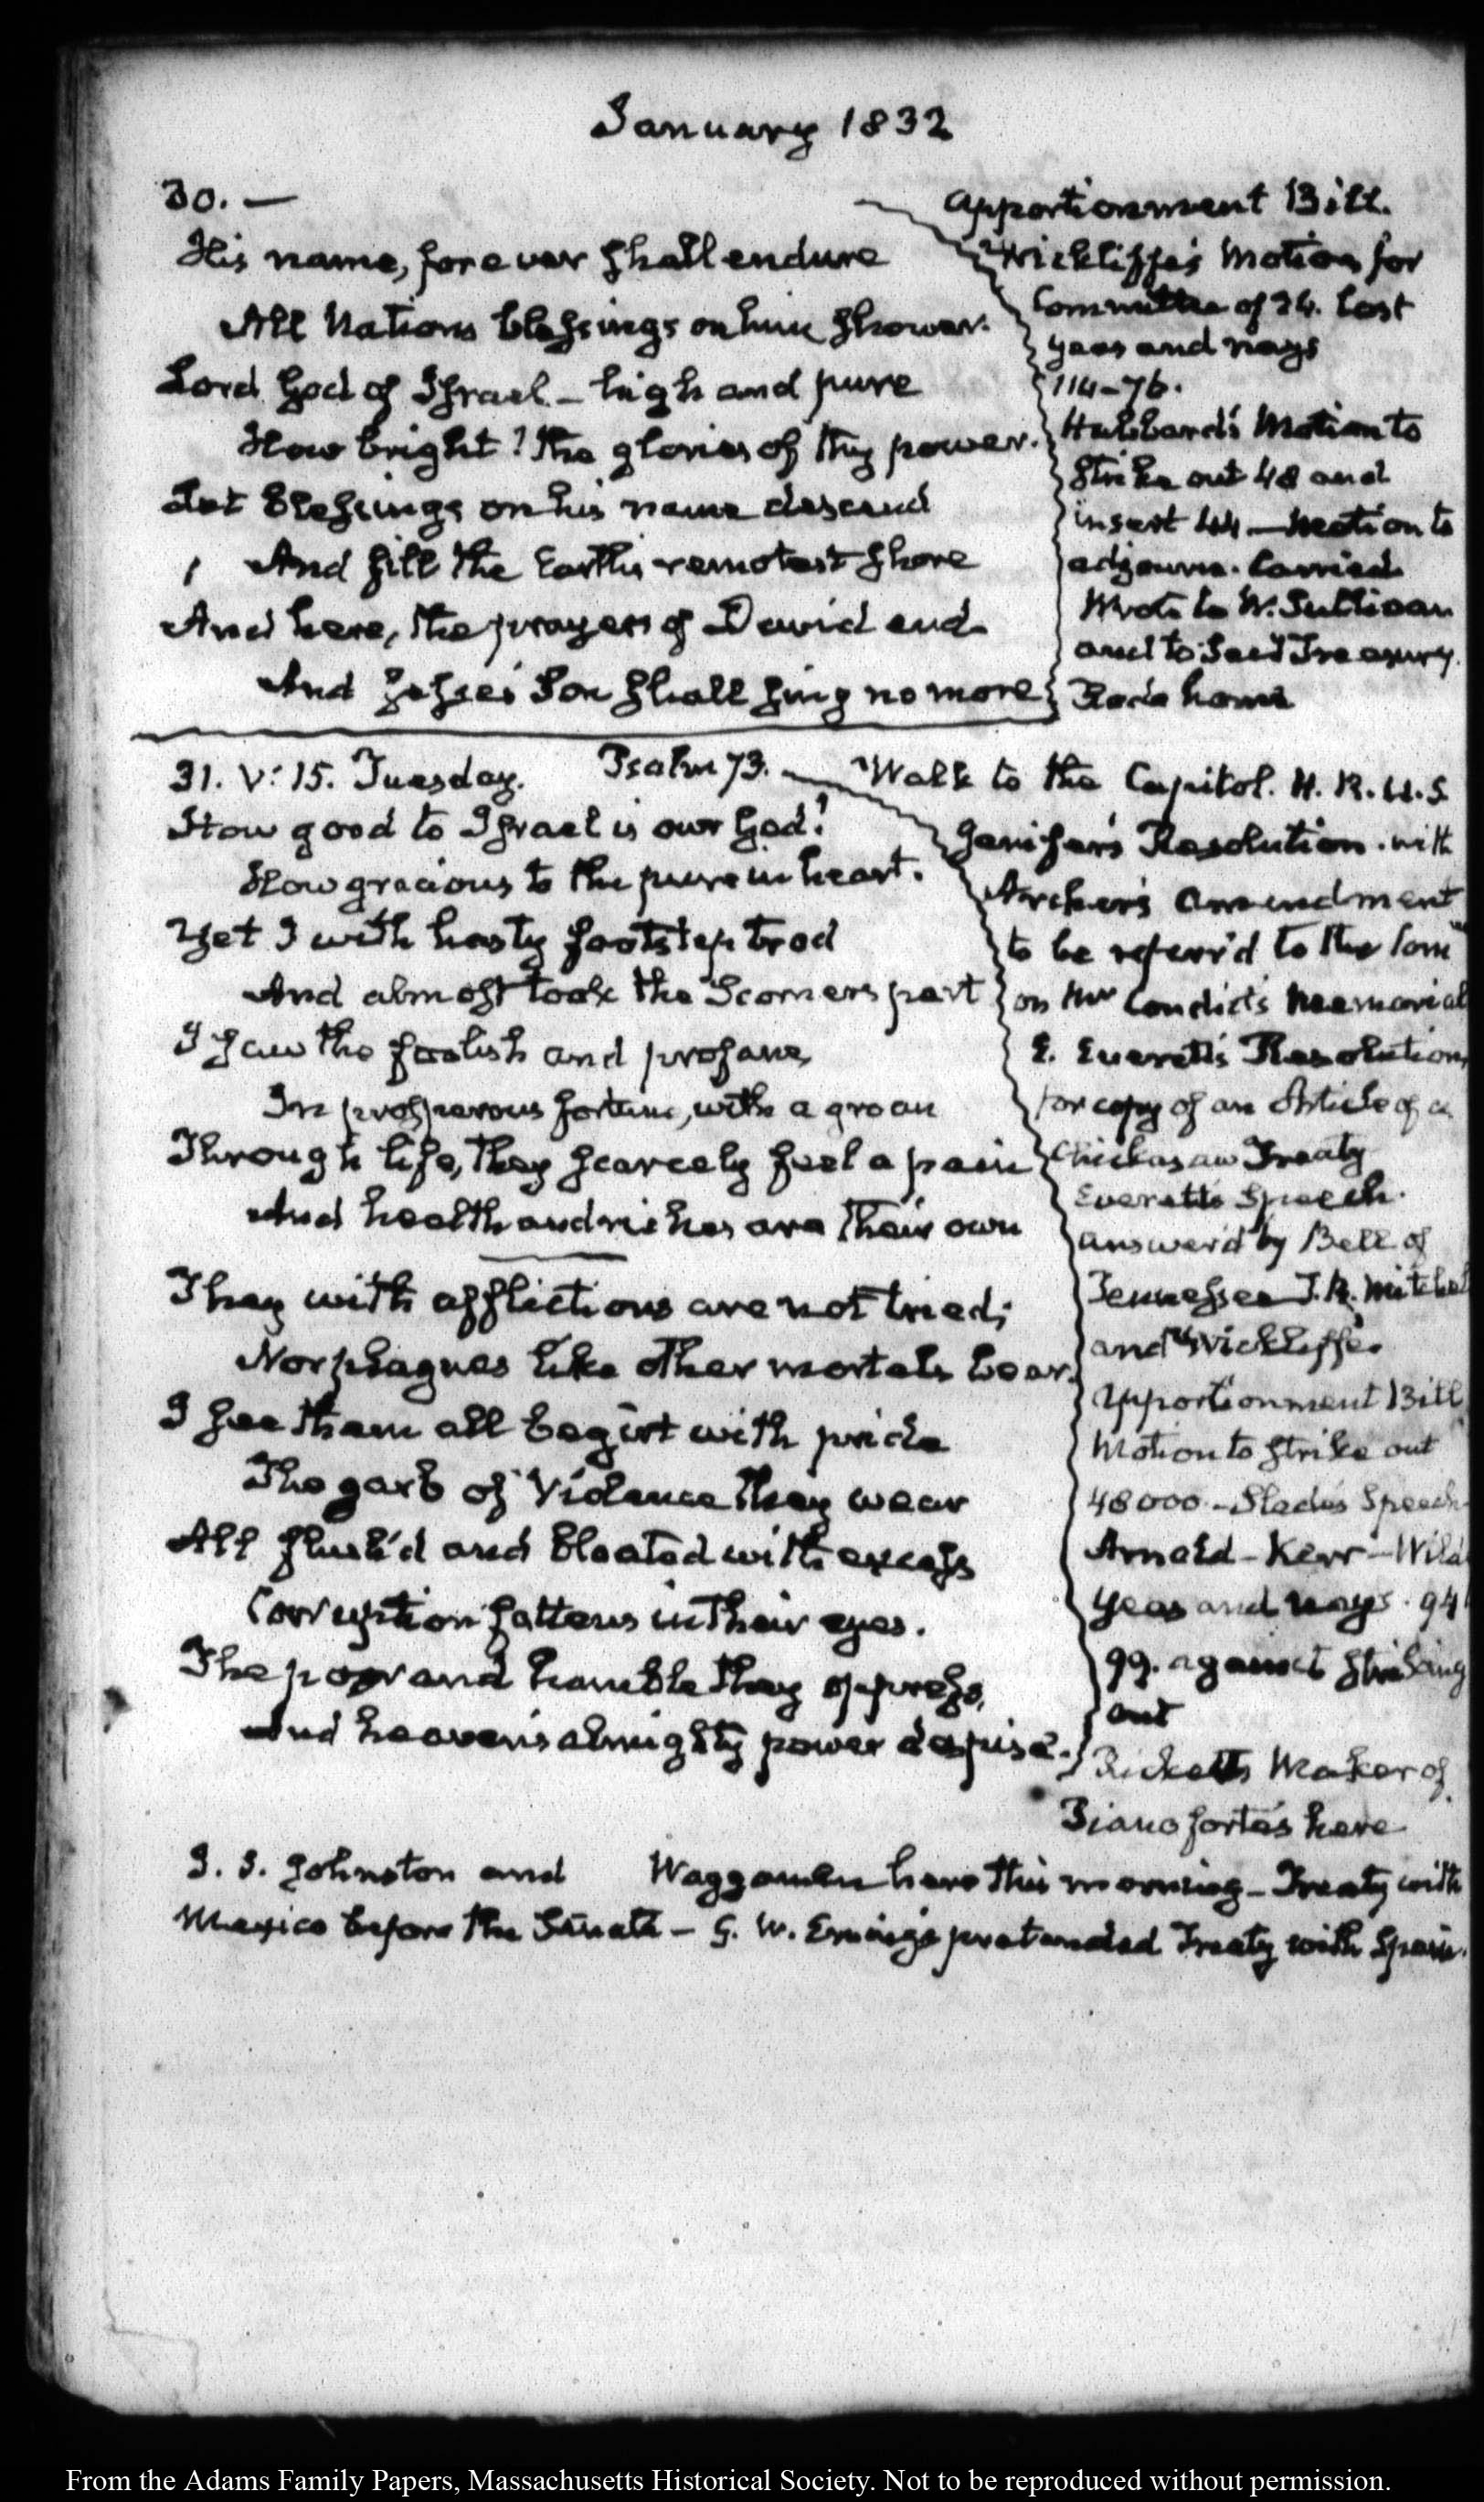 January 1832
30. —
His name, forever shall endure
All Nations blessings on him shower.
Lord God of Israel – high and pure
How bright! the glories of thy power.
Let Blessings on his name descend
And fill the Earth's remotest shore
And here, the prayers of David end.
And Jesse's Son shall sing no more
Apportionment Bill.
Wickliffe's Motion for
Committee of 24. lost
yeas and nays
114–76.
Hubbard's Motion to
strike out 48 and
insert 44 — Motion to
adjourn. Carried.
Wrote to W. Sullivan
and to Treasury.
Rode home
31. V: 15. Tuesday. Psalm 73. —
How good to Israel is our God!
How gracious to the pure in heart.
Yet I with hasty footstep trod
And almost took the Scorners part
I saw the foolish and profane,
In prosperous fortune, with a groan
Through life, they scarcely feel a pain
And health and riches are their own
They with afflictions are not tried;
Nor plagues like other mortals bear.
I see them all begirt with pride
The garb of Violence they wear
All flush'd and bloated with excess
Corruption fattens in their eyes.
The poor and humble they oppress,
And heaven's almighty power despise.
Walk to the Capitol. H. R. U. S
Jenifer's Resolution. with
Archer's amendment
to be referr'd to the Com
on Mr Condict's Memorial
E. Everett's Resolution,
for copy of an Article of a
Chickasaw Treaty
Everett's Speech.
answer'd by Bell of
Tennessee J. R. Mitchel
and Wickliffe.
Apportionment Bill
Motion to strike out
48000. – Slade's Speech
Arnold – Kerr – Wild
yeas and nays. 94
99. against striking
out
Ricketts Maker of
Piano forte's here
J. S. Johnston and Waggaman here this morning – Treaty with
Mexico before the Senate – G. W. Erving's pretended Treaty with Spain.
From the Adams Family Papers, Massachusetts Historical Society. Not to be reproduced without permission.